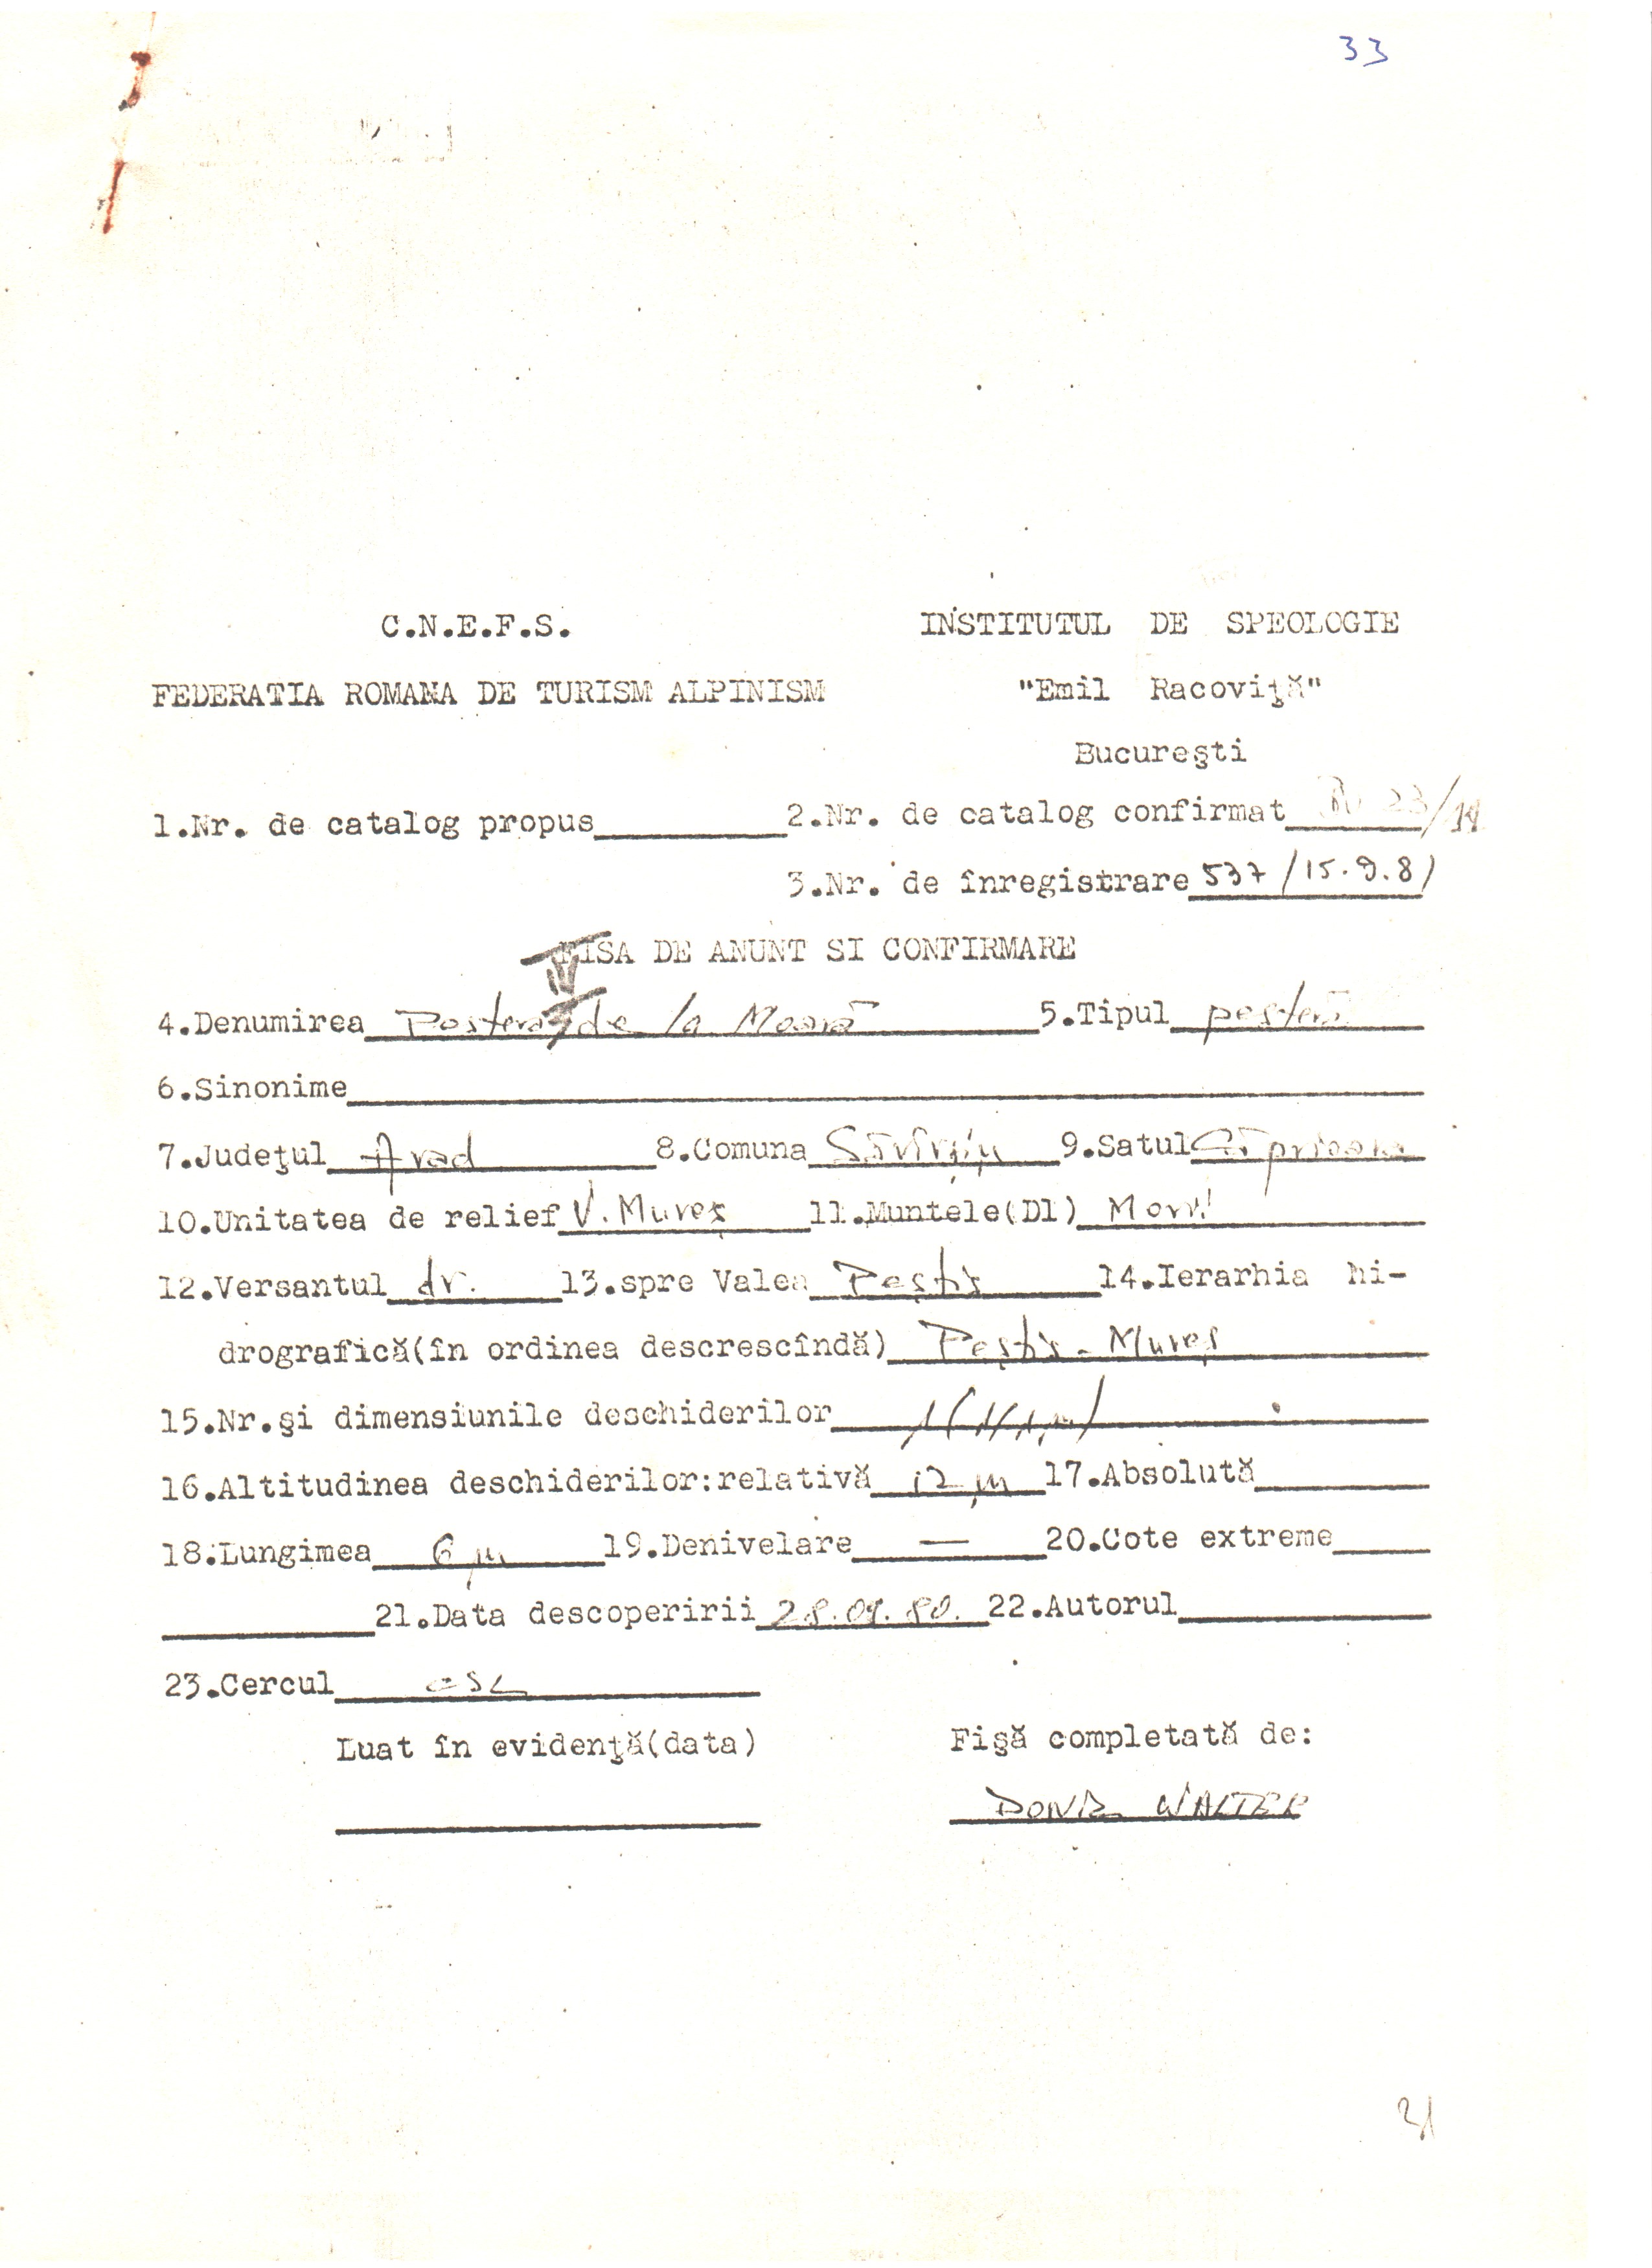 33
C.N.E.F.S. INSTITUTUL DE SPEOLOGIE
FEDERATIA ROMANA DE TURISM ALPINISM "Emil Racoviţă"
Bucureşti
1.Nr. de catalog propus 2.Nr. de catalog confirmat
3.Nr. de înregistrare 537/15.9.81
FISA DE ANUNT SI CONFIRMARE
4.Denumirea de la Moară 5.Tipul peşteră
6.Sinonime
7.Judeţul Arad 8.Comuna Săvîrşin 9.Satul
10.Unitatea de relief V. Mureş 11.Muntele(Dl) Morii
12.Versantul dr. 13.spre Valea Peştiş 14.Ierarhia hi-
drografică(în ordinea descrescîndă) Peştiş - Mureş
15.Nr.şi dimensiunile deschiderilor 1(1/1m)
16.Altitudinea deschiderilor:relativă 12 m 17.Absolută
18.Lungimea 6 m 19.Denivelare — 20.Cote extreme
21.Data descoperirii 22.Autorul
23.Cercul
Luat în evidenţă(data) Fişă completată de:
WALTER